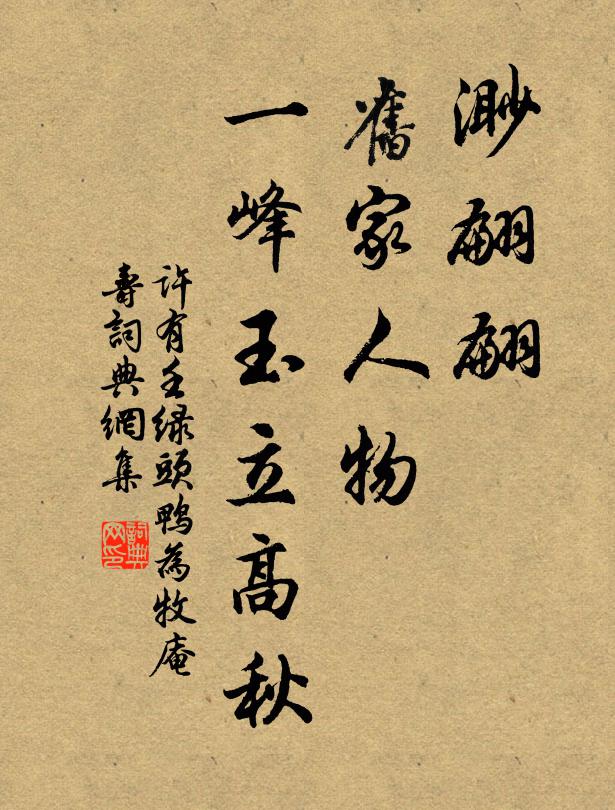 渺翩翩
舊家人物
一峰玉立高秋
許有壬緑頭鴨為牧庵
壽詞典網集
詞典
网印